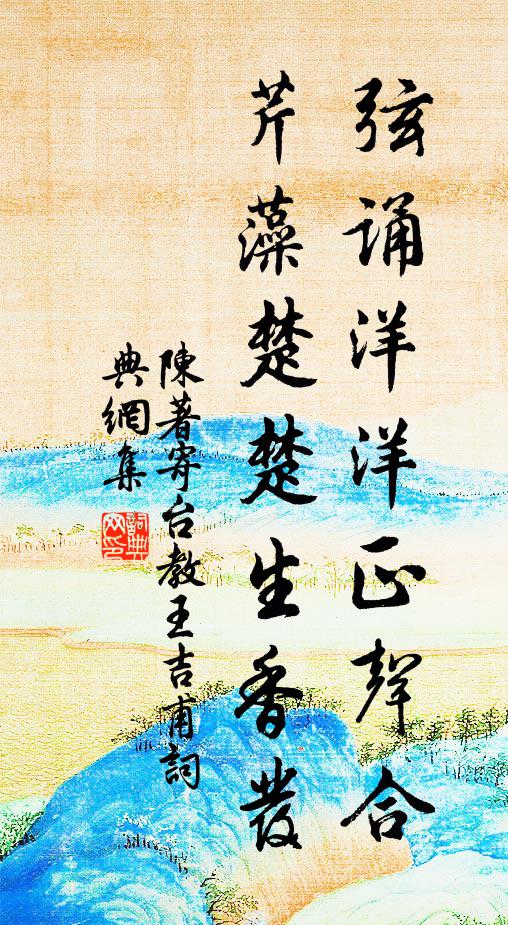 弦誦洋洋正聲合
芹藻楚楚生香發
陳著寄台教王吉甫詞
典網集
詞典網印